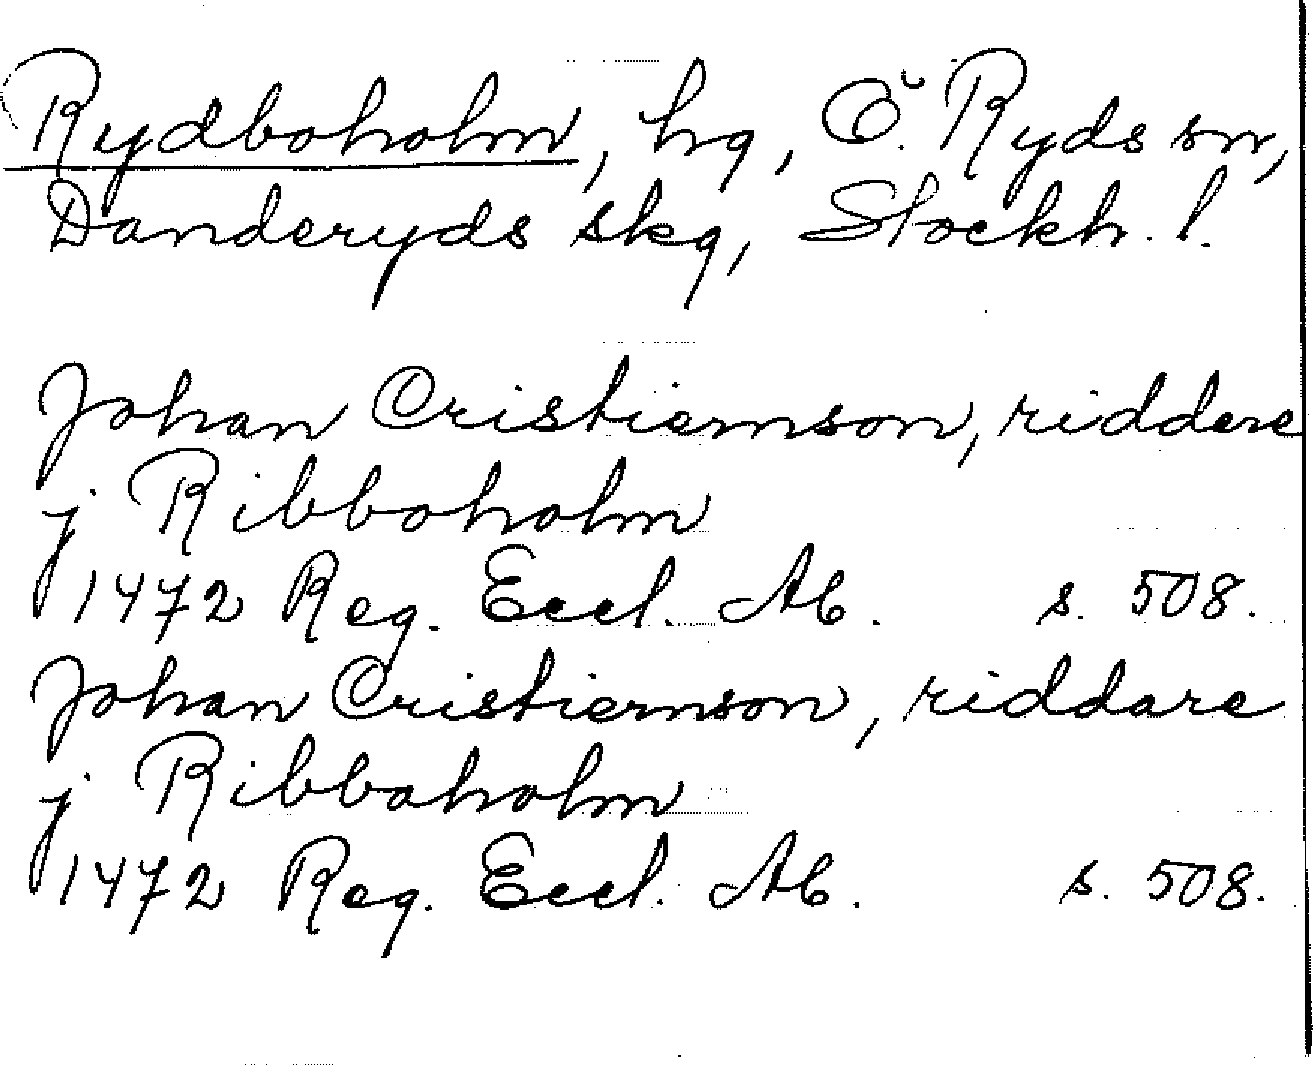 Rydboholm, hg, Ö. Ryds sn,
Danderyds skg, Stockh. l.
Johan Cristiernson, riddere
j Ribboholm
1472 Reg. Eccl. Ab. s. 508.
Johan Cristiernson, riddare
j Ribbaholm
1472 Reg. Eccl. Ab. s. 508.